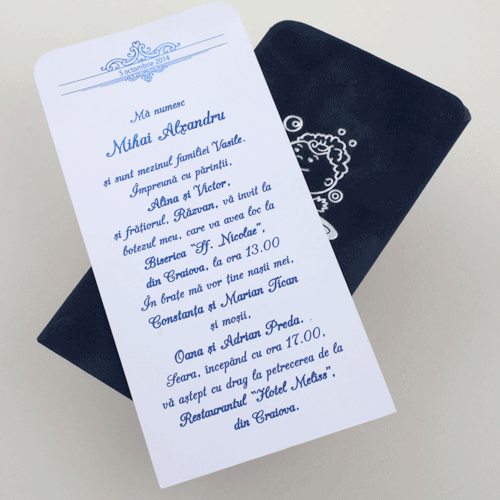 5 octombrie 2014
Mă numesc
Mihai Alexandru
și sunt mezinul familiei Vasile.
Împreună cu părinții,
Alina și Victor,
și frățiorul, Răzvan, vă invit la
botezul meu, care va avea loc la
Biserica "Sf. Nicolae",
din Craiova, la ora 13.00
În brațe mă vor ține nașii mei,
Constanța și Marian Tican
și moșii,
Oana și Adrian Preda.
Seara, începând cu ora 17.00,
vă aștept cu drag la petrecerea de la
Restaurantul "Hotel Meliss",
din Craiova.